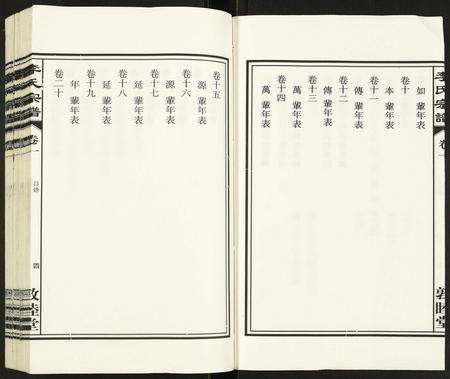 李氏宗譜
卷一
敦睦堂
如 輩年表
卷十
本 輩年表
卷十一
傳 輩年表
卷十二
傳 輩年表
卷十三
萬 輩年表
卷十四
萬 輩年表
卷十五
源 輩年表
卷十六
源 輩年表
卷十七
延 輩年表
卷十八
延 輩年表
卷十九
年 輩年表
卷二十
李氏宗譜
卷一
目錄
四
敦睦堂